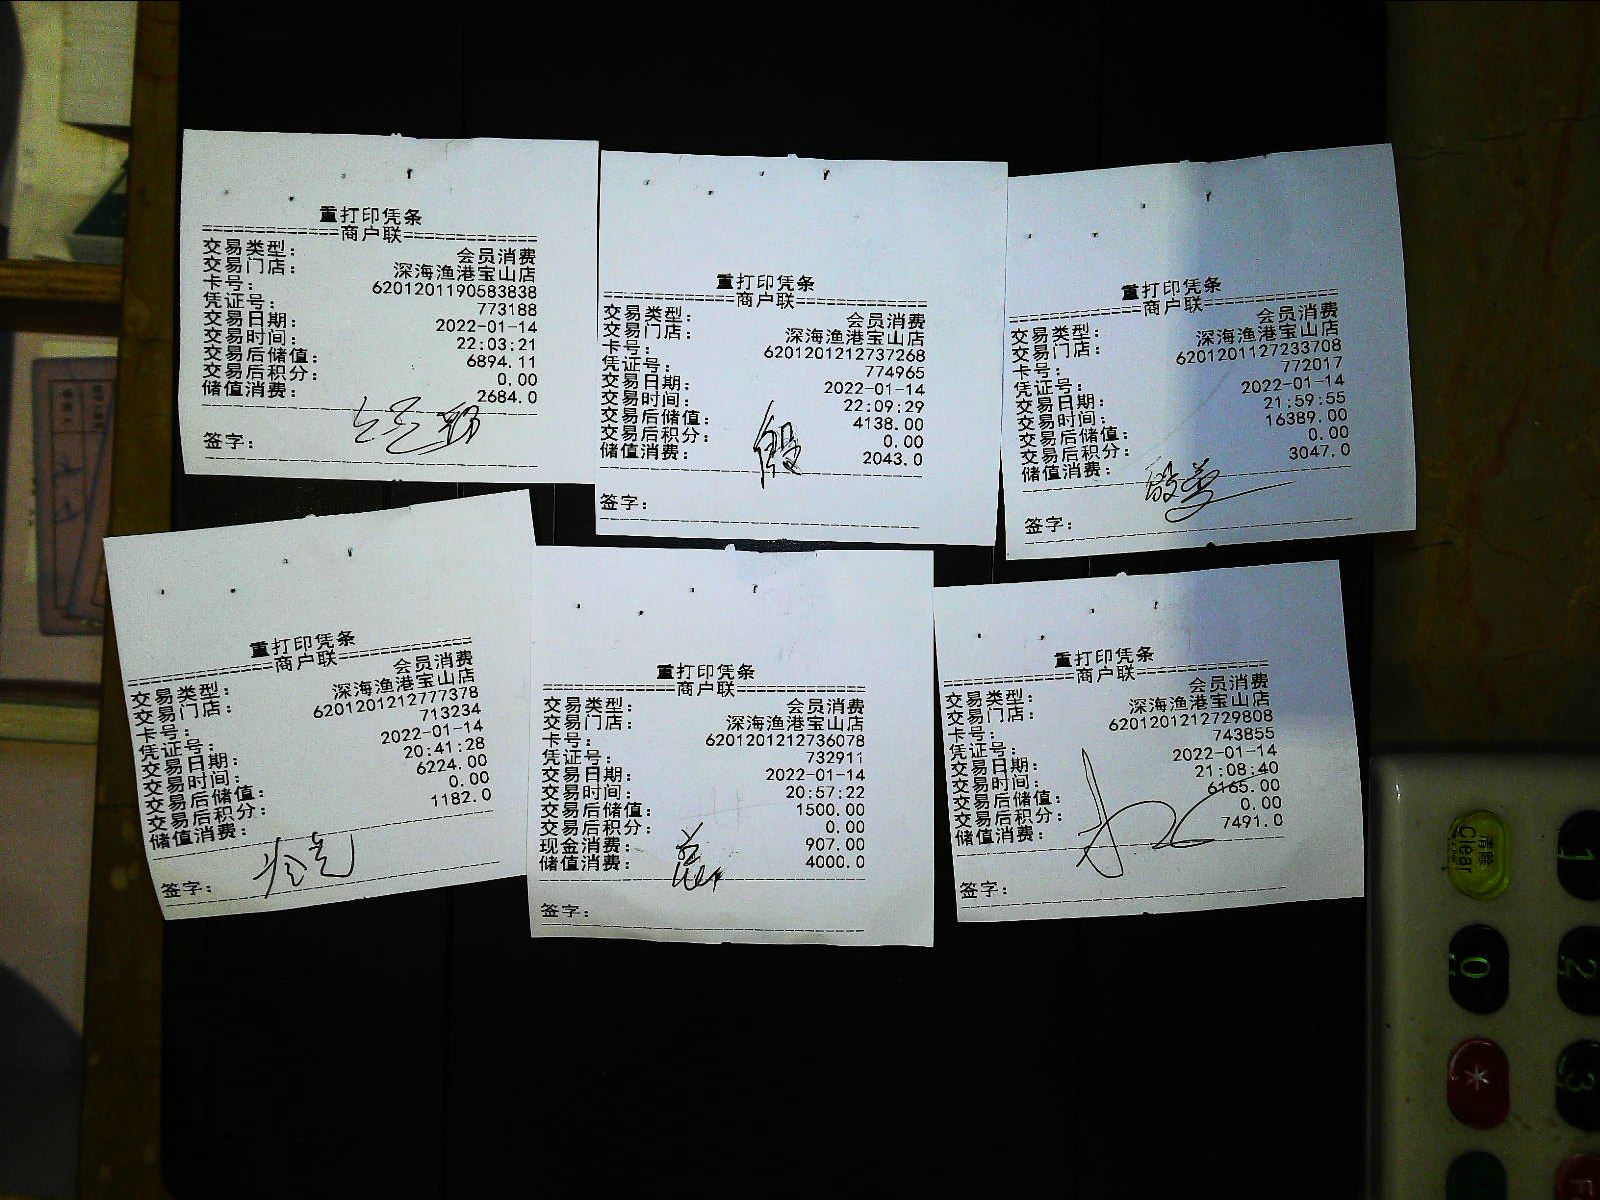 重打印凭条
==============商户联==============
交易类型: 会员消费
交易门店: 深海渔港宝山店
卡号: 6201201190583838
凭证号: 773188
交易日期: 2022-01-14
交易时间: 22:03:21
交易后储值: 6894.11
交易后积分: 0.00
储值消费: 2684.0
签字:
重打印凭条
==============商户联==============
交易类型: 会员消费
交易门店: 深海渔港宝山店
卡号: 6201201212737268
凭证号: 774965
交易日期: 2022-01-14
交易时间: 22:09:29
交易后储值: 4138.00
交易后积分: 0.00
储值消费: 2043.0
签字:
重打印凭条
==============商户联==============
交易类型: 会员消费
交易门店: 深海渔港宝山店
卡号: 6201201127233708
凭证号: 772017
交易日期: 2022-01-14
交易时间: 21:59:55
交易后储值: 16389.00
交易后积分: 0.00
储值消费: 3047.0
签字:
重打印凭条
==============商户联==============
交易类型: 会员消费
交易门店: 深海渔港宝山店
卡号: 6201201212777378
凭证号: 713234
交易日期: 2022-01-14
交易时间: 20:41:28
交易后储值: 6224.00
交易后积分: 0.00
储值消费: 1182.0
签字:
重打印凭条
==============商户联==============
交易类型: 会员消费
交易门店: 深海渔港宝山店
卡号: 6201201212736078
凭证号: 732911
交易日期: 2022-01-14
交易时间: 20:57:22
交易后储值: 1500.00
交易后积分: 0.00
现金消费: 907.00
储值消费: 4000.0
签字:
重打印凭条
==============商户联==============
交易类型: 会员消费
交易门店: 深海渔港宝山店
卡号: 6201201212729808
凭证号: 743855
交易日期: 2022-01-14
交易时间: 21:08:40
交易后储值: 6165.00
交易后积分: 0.00
储值消费: 7491.0
签字:
清除
Clear
1
0
2
*
3